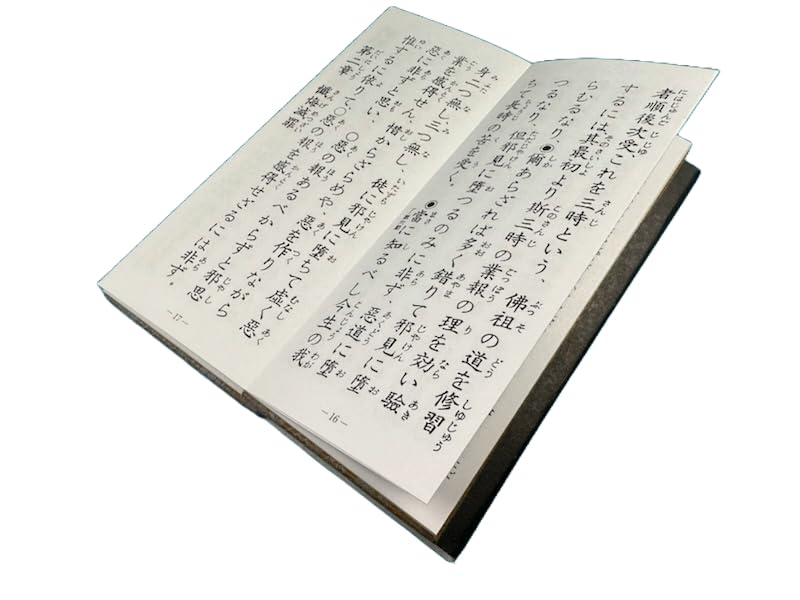 者順後次受これを三時という、佛祖の道を修習
するには其最初より斯三時の業報の理を効い験
らむるなり、◉爾あらざれば多く錯りて邪見に堕
つるなり、但邪見に堕つるのみに非ず、惡道に堕
ちて長時の苦を受く。◉當に知るべし今生の我
—16—
身二つ無し、三つ無し、徒に邪見に堕ちて虚く惡
業を感得せん、惜からざらめや、惡を作りながら
惡に非ずと思い、〇惡の報あるべからずと邪思
惟するに依りて〇惡の報を感得せざるには非ず。
第二章 懺悔滅罪
—17—